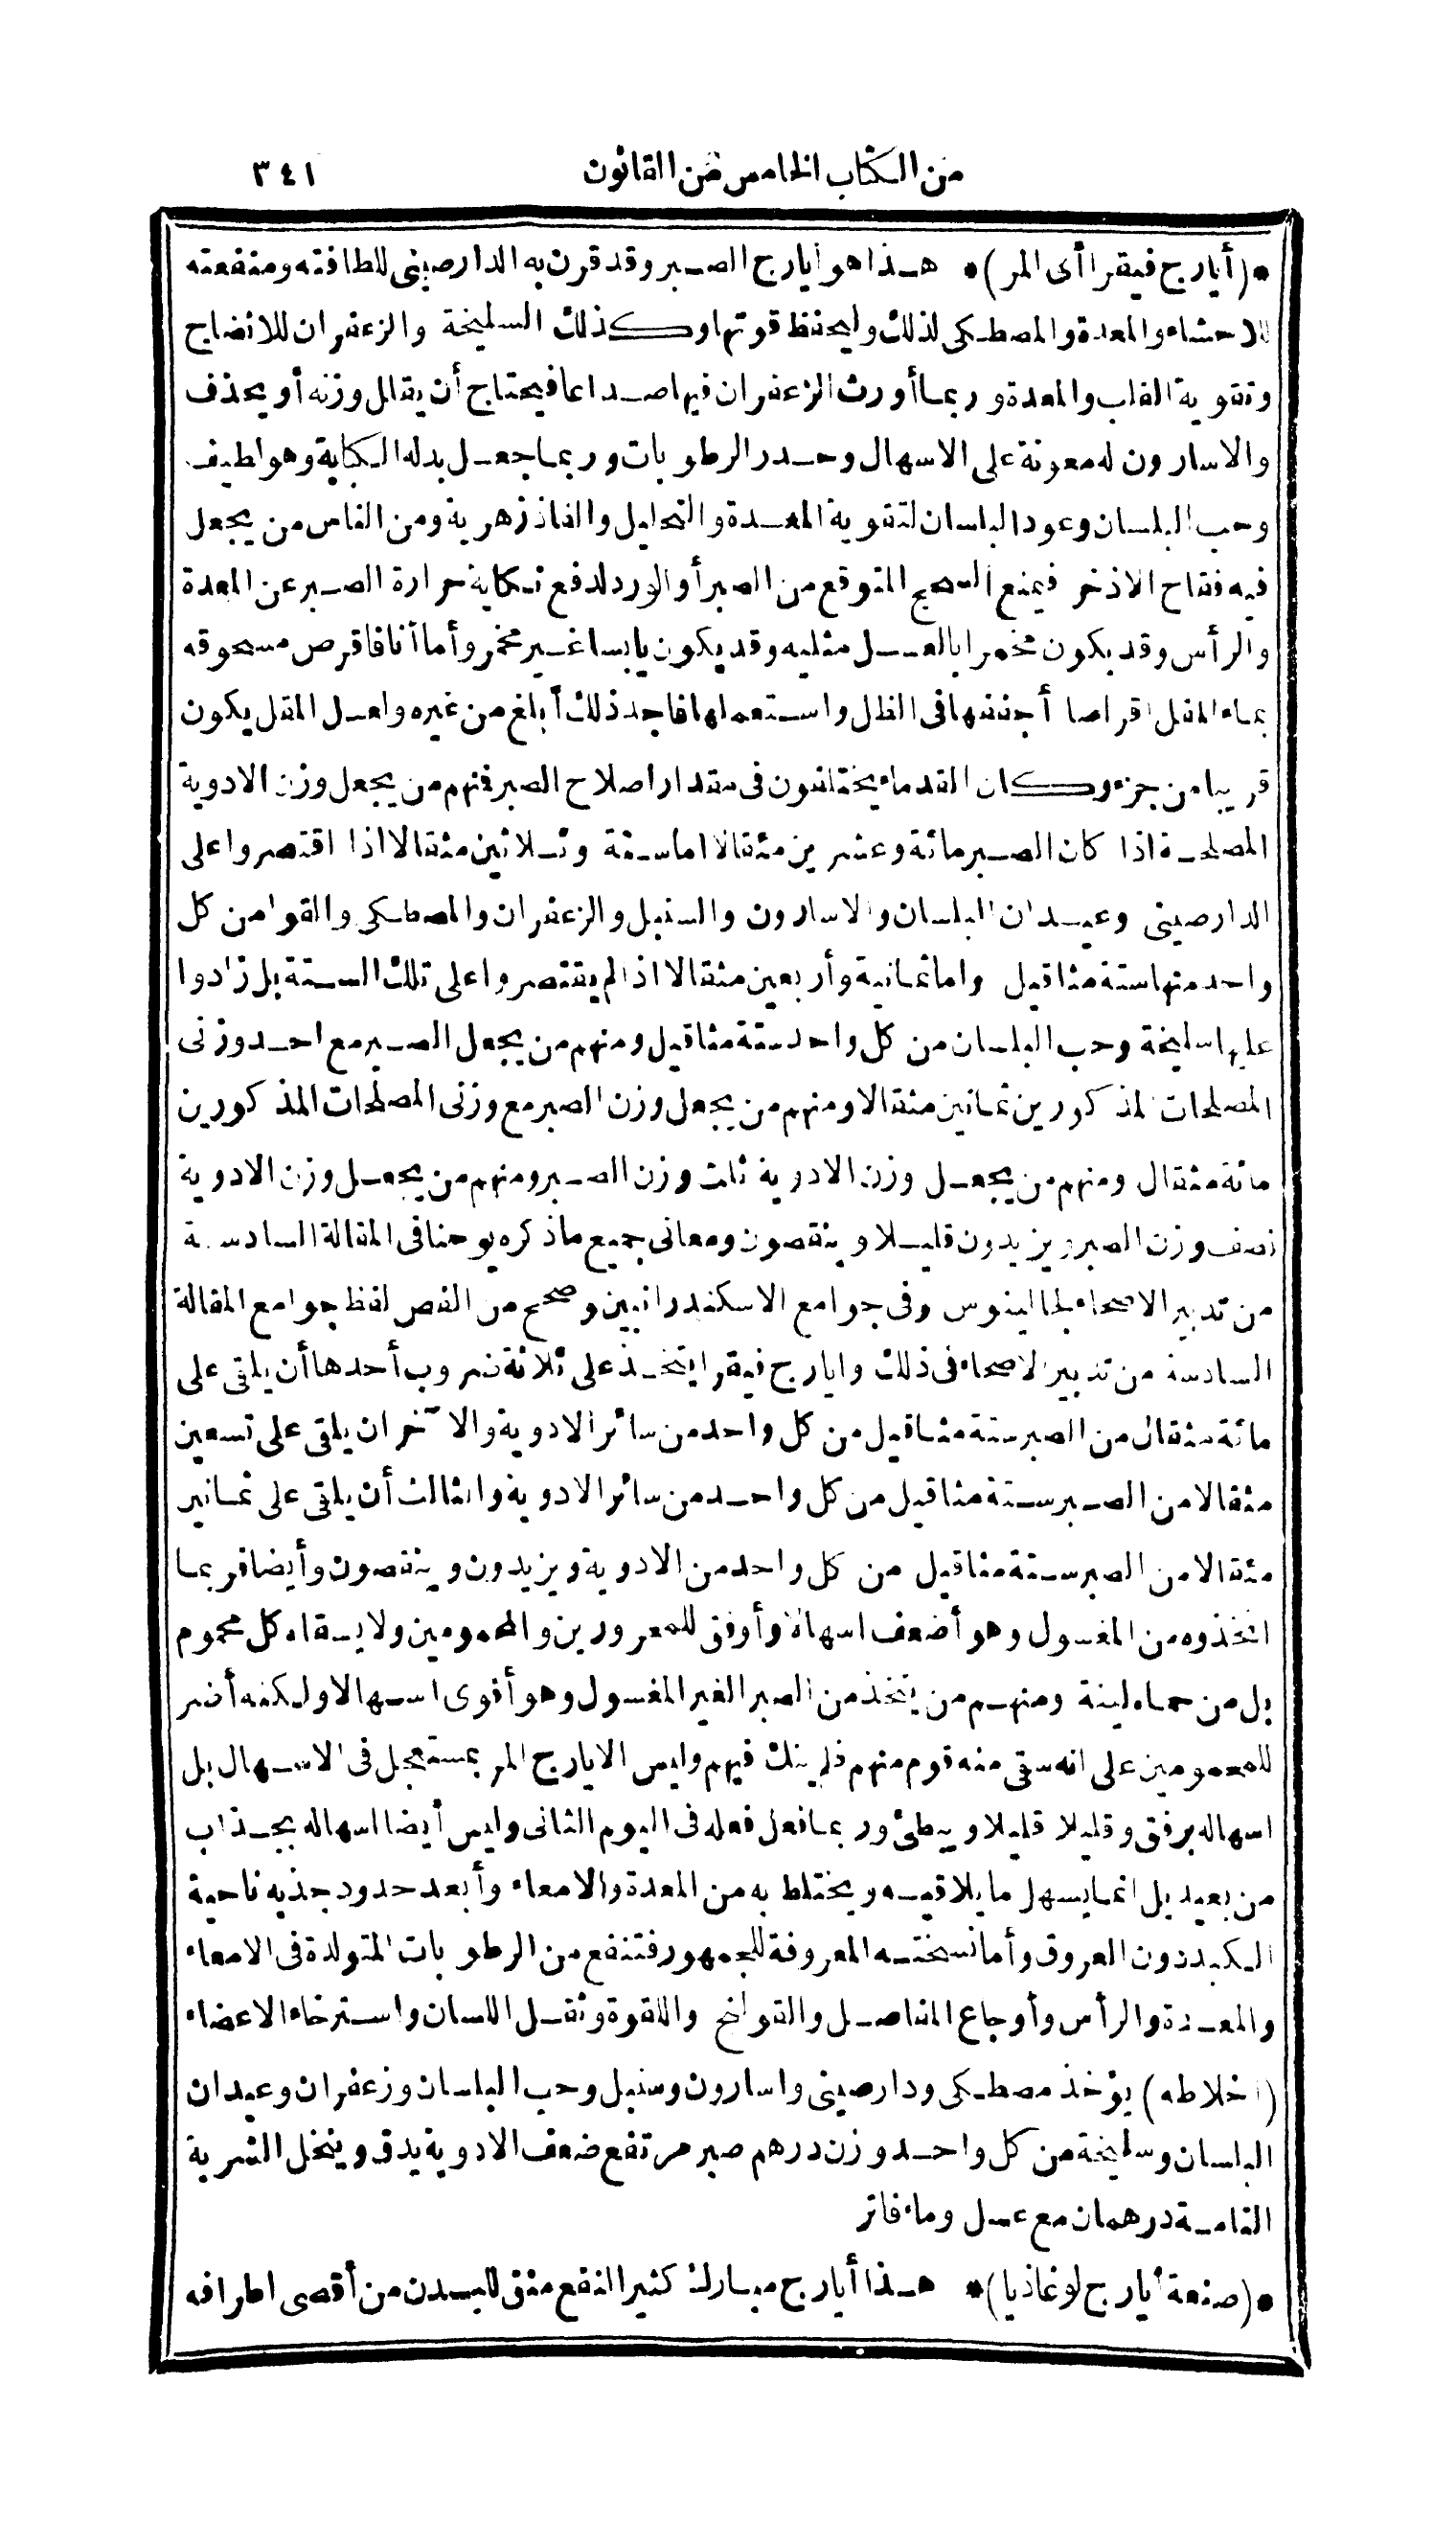 من الكتاب الخامس من القانون ٣٤١
*(أيارج فيقرا أى المر)* هذا هو أيارج الصبر وقد قرن به الدارصينى للطافته ومنفعته
للاحشاء والمعدة والمصطكى لذلك وليحفظ قوتها وكذلك السليخة والزعفران للانضاج
وتقوية القلب والمعدة وربما أورث الزعفران فيها صداعا فيحتاج أن يقلل وزنه أو يحذف
والاسارون له معونة على الاسهال وحدر الرطوبات وربما جعل بدله الكبابة وهو لطيف
وحب البلسان وعود البلسان لتقوية المعدة والتحليل والفاذزهرية ومن الناس من يجعل
فيه فقاح الاذخر فيمنع السحج المتوقع من الصبر أو الورد لدفع نكاية حرارة الصبر عن المعدة
والرأس وقد يكون مخمرا بالعسل مثليه وقد يكون يابسا غير مخمر وأما أنا فاقرص مسحوقه
بماء المقل اقراصا أجففها فى الظل واستعملها فاجد ذلك أبلغ من غيره ولعل المقل يكون
قريبا من جزء وكان القدماء يختلفون فى مقدار اصلاح الصبر فمنهم من يجعل وزن الادوية
المصلحة اذا كان الصبر مائة وعشرين مثقالا اما ستة وثلاثين مثقالا اذا اقتصروا على
الدارصينى وعيدان البلسان والاسارون والسنبل والزعفران والمصطكى والقوا من كل
واحد منها ستة مثاقيل واما ثمانية وأربعين مثقالا اذا لم يقتصروا على تلك الستة بل زادوا
عليها سليخة وحب البلسان من كل واحد ستة مثاقيل ومنهم من يجعل الصبر مع احد وزنى
المصلحات المذكورين ثمانين مثقالا ومنهم من يجعل وزن الصبر مع وزنى المصلحات المذكورين
مائة مثقال ومنهم من يجعل وزن الادوية ثلث وزن الصبر ومنهم من يجعل وزن الادوية
نصف وزن الصبر ويزيدون قليلا وينقصون ومعانى جميع ما ذكره يوحنا فى المقالة السادسة
من تدبير الاصحاء لجالينوس وفى جوامع الاسكندرانيين وصحح من الفص لفظ جوامع المقالة
السادسة من تدبير الاصحاء فى ذلك وايارج فيقرا يتخذ على ثلاثة ضروب أحدها أن يلقى على
مائة مثقال من الصبر ستة مثاقيل من كل واحد من سائر الادوية والآخر ان يلقى على تسعين
مثقالا من الصبر ستة مثاقيل من كل واحد من سائر الادوية والثالث أن يلقى على ثمانين
مثقالا من الصبر ستة مثاقيل من كل واحد من الادوية ويزيدون وينقصون وأيضا فربما
اتخذوه من المغسول وهو أضعف اسهالا وأوفق للمحرورين والمحمومين ولا يسقاه كل محموم
بل من حماه لينة ومنهم من يتخذ من الصبر الغير المغسول وهو أقوى اسهالا ولكنه أضر
للمحمومين على انه سقى منه قوم منهم فلم ينك فيهم وليس الايارج المر بمستعجل فى الاسهال بل
اسهاله برفق وقليلا قليلا ويبطئ وربما فعل فعله فى اليوم الثانى وليس أيضا اسهاله بجذاب
من بعيد بل انما يسهل ما يلاقيه ويختلط به من المعدة والامعاء وأبعد حدود جذبه ناحية
الكبد دون العروق وأما نسخته المعروفة للجمهور فتنفع من الرطوبات المتولدة فى الامعاء
والمعدة والرأس وأوجاع المفاصل والقولنج واللقوة وثقل اللسان واسترخاء الاعضاء
(اخلاطه) يؤخذ مصطكى ودارصينى واسارون وسنبل وحب البلسان وزعفران وعيدان
البلسان وسليخة من كل واحد وزن درهم صبر مرتفع ضعف الادوية يدق وينخل الشربة
التامة درهمان مع عسل وماء فاتر
*(صنعة أيارج لوغاذيا)* هذا أيارج مبارك كثير النفع منق للبدن من أقصى اطرافه